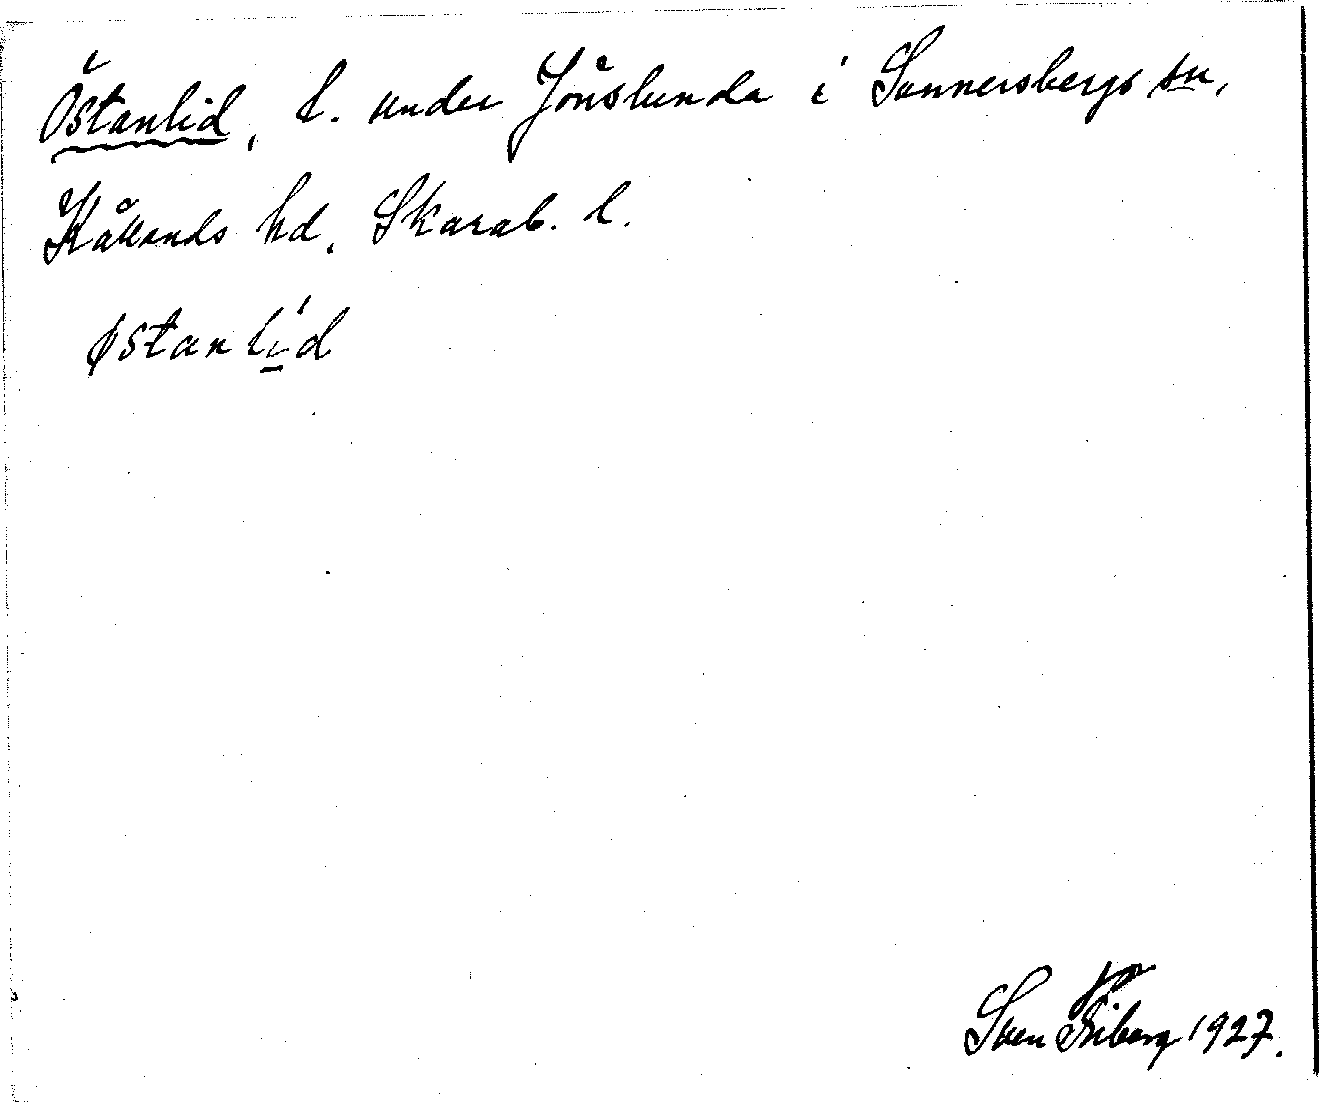 Östanlid, l. under Jönslunda i Sunnersbergs sn,
Kållands hd. Skarab. l.
østanlid
Sven Friberg 1927.